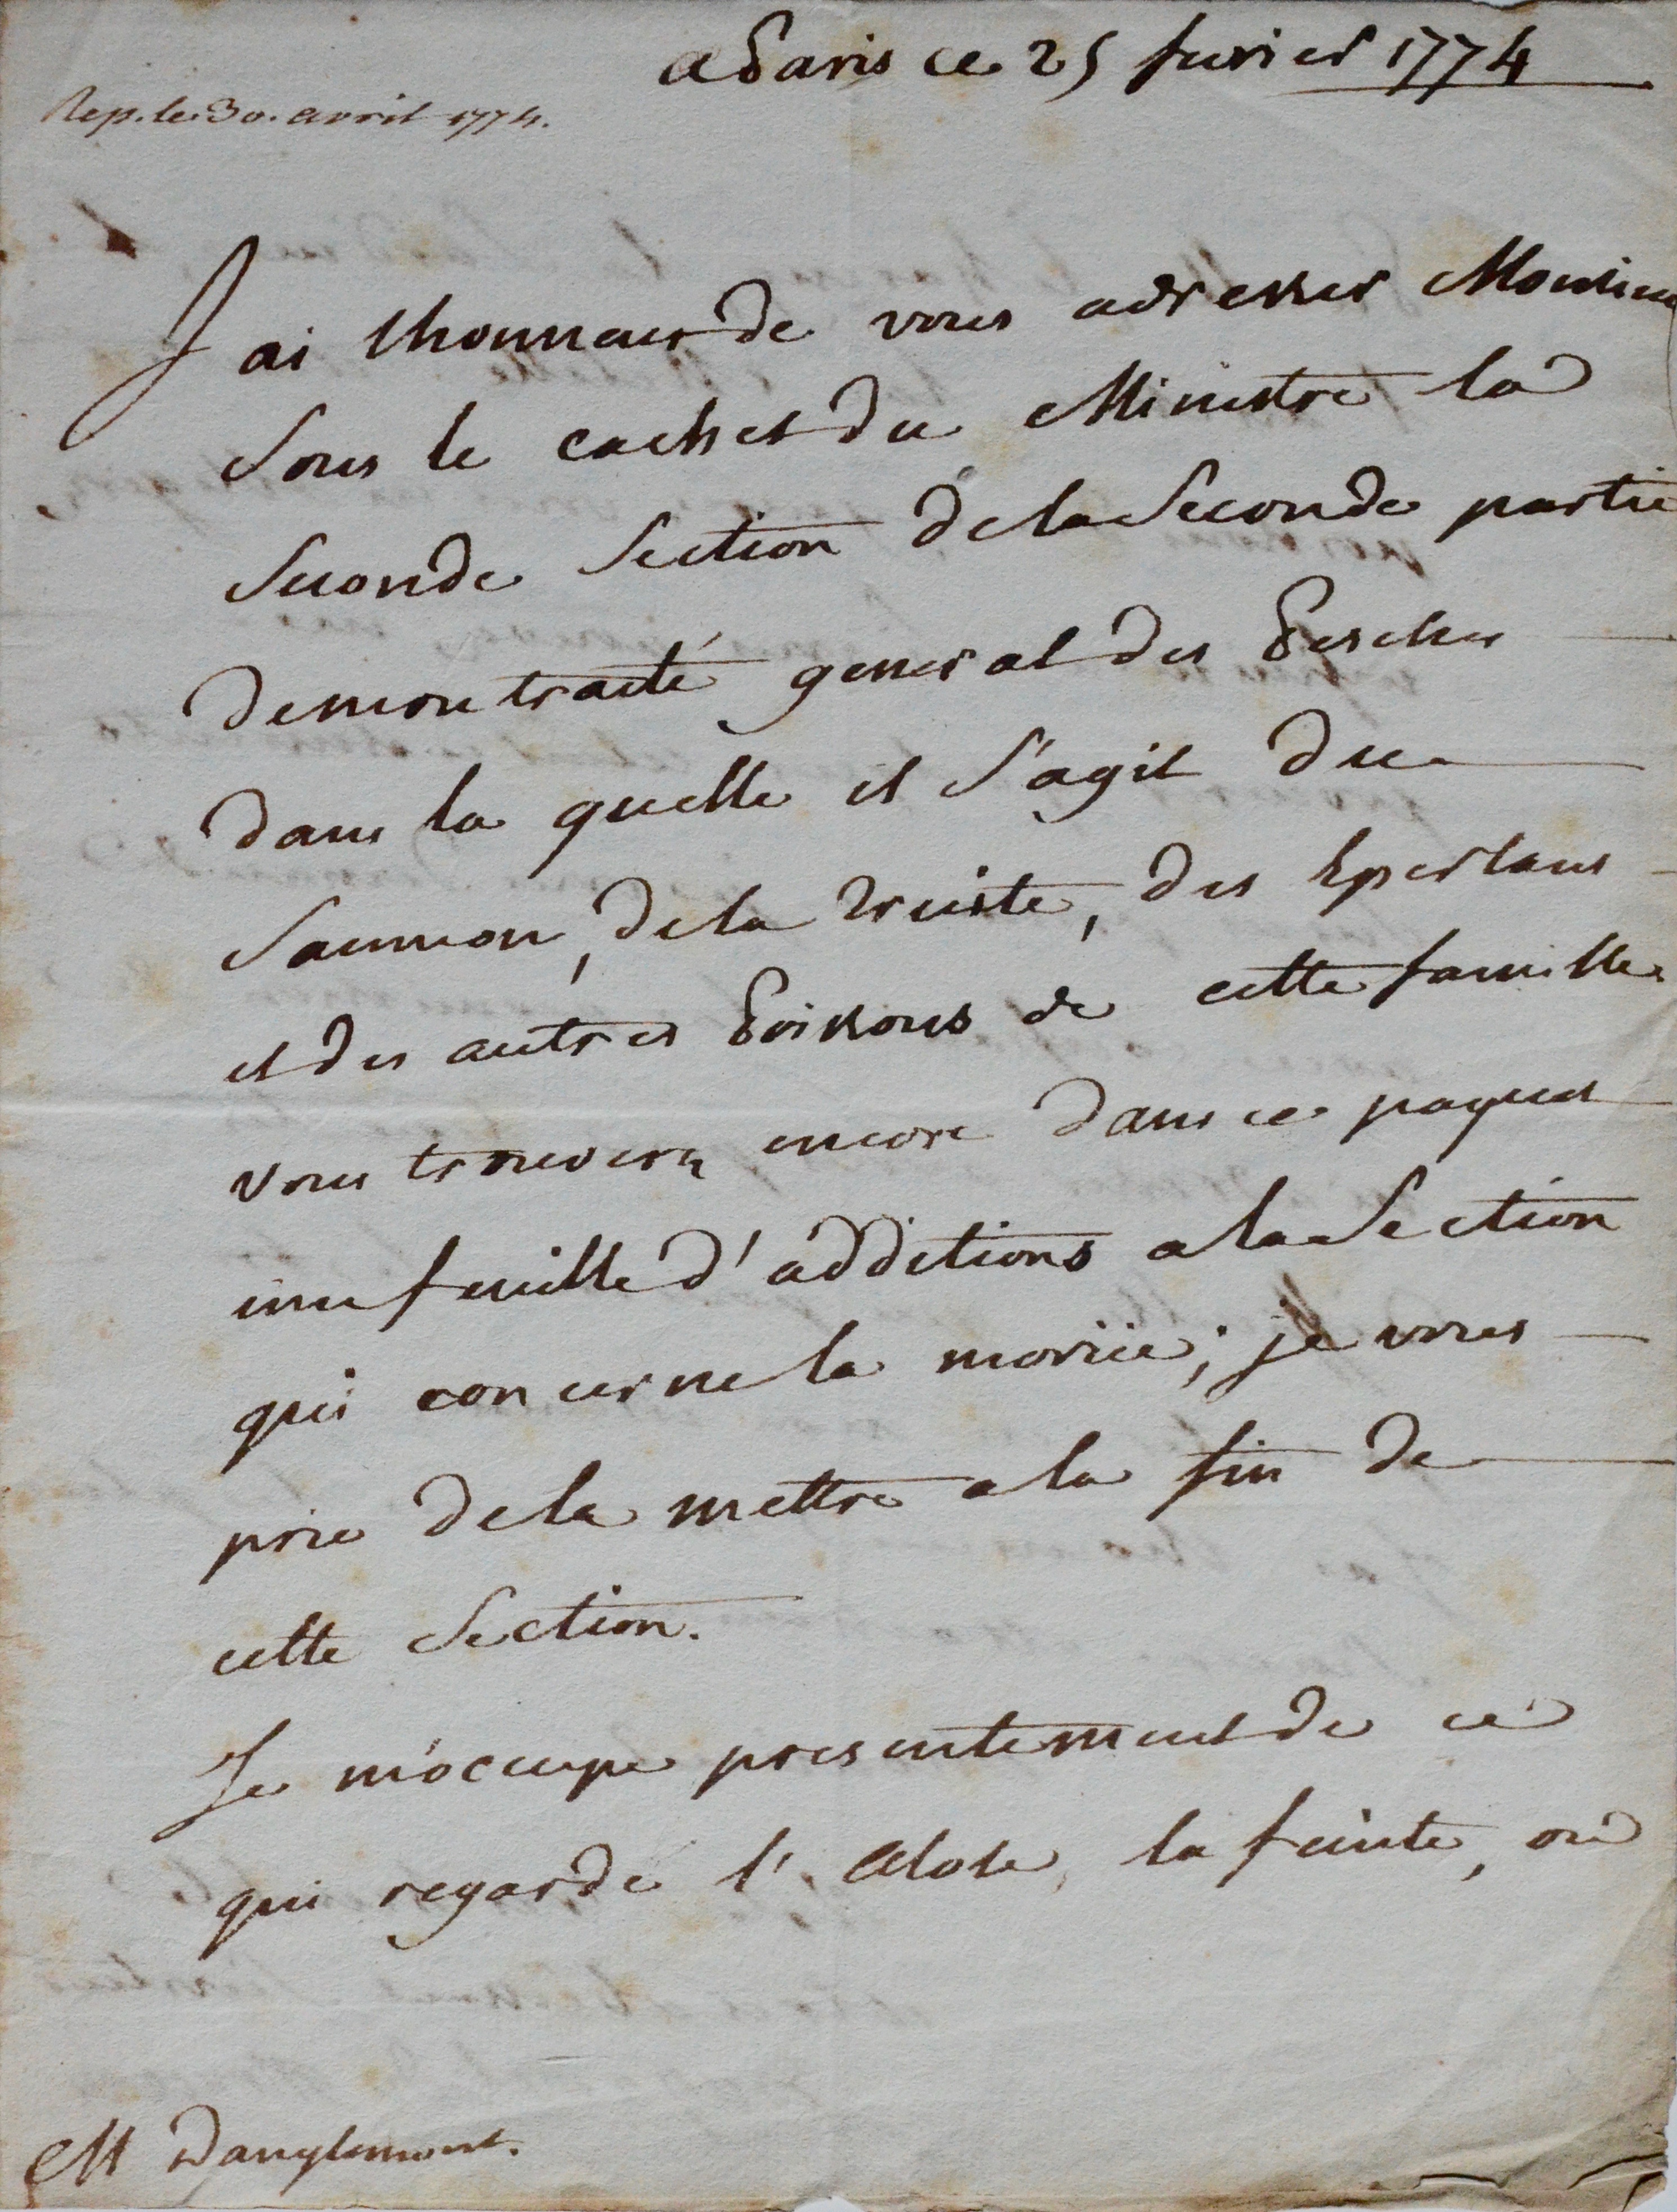 a Paris ce 25 fevrier 1774
Rep. le 30. avril 1774.
J'ai lhonneur de vous adresser Monsieur
sous le cachet du Ministre la
seconde section de la seconde partie
de mon traité general des Pesches
dans la quelle il s'agit du
saumon, de la Truite, des Eperlans
et des autres Poissons de cette famille
vous trouverez encore dans ce paquet
une feuille d'additions a la section
qui concerne la moriie; je vous
prie de la mettre a la fin de
cette section.
Je m'occupe presentement de ce
qui regarde l'Alose, la feinte, ou
M Danglemont.